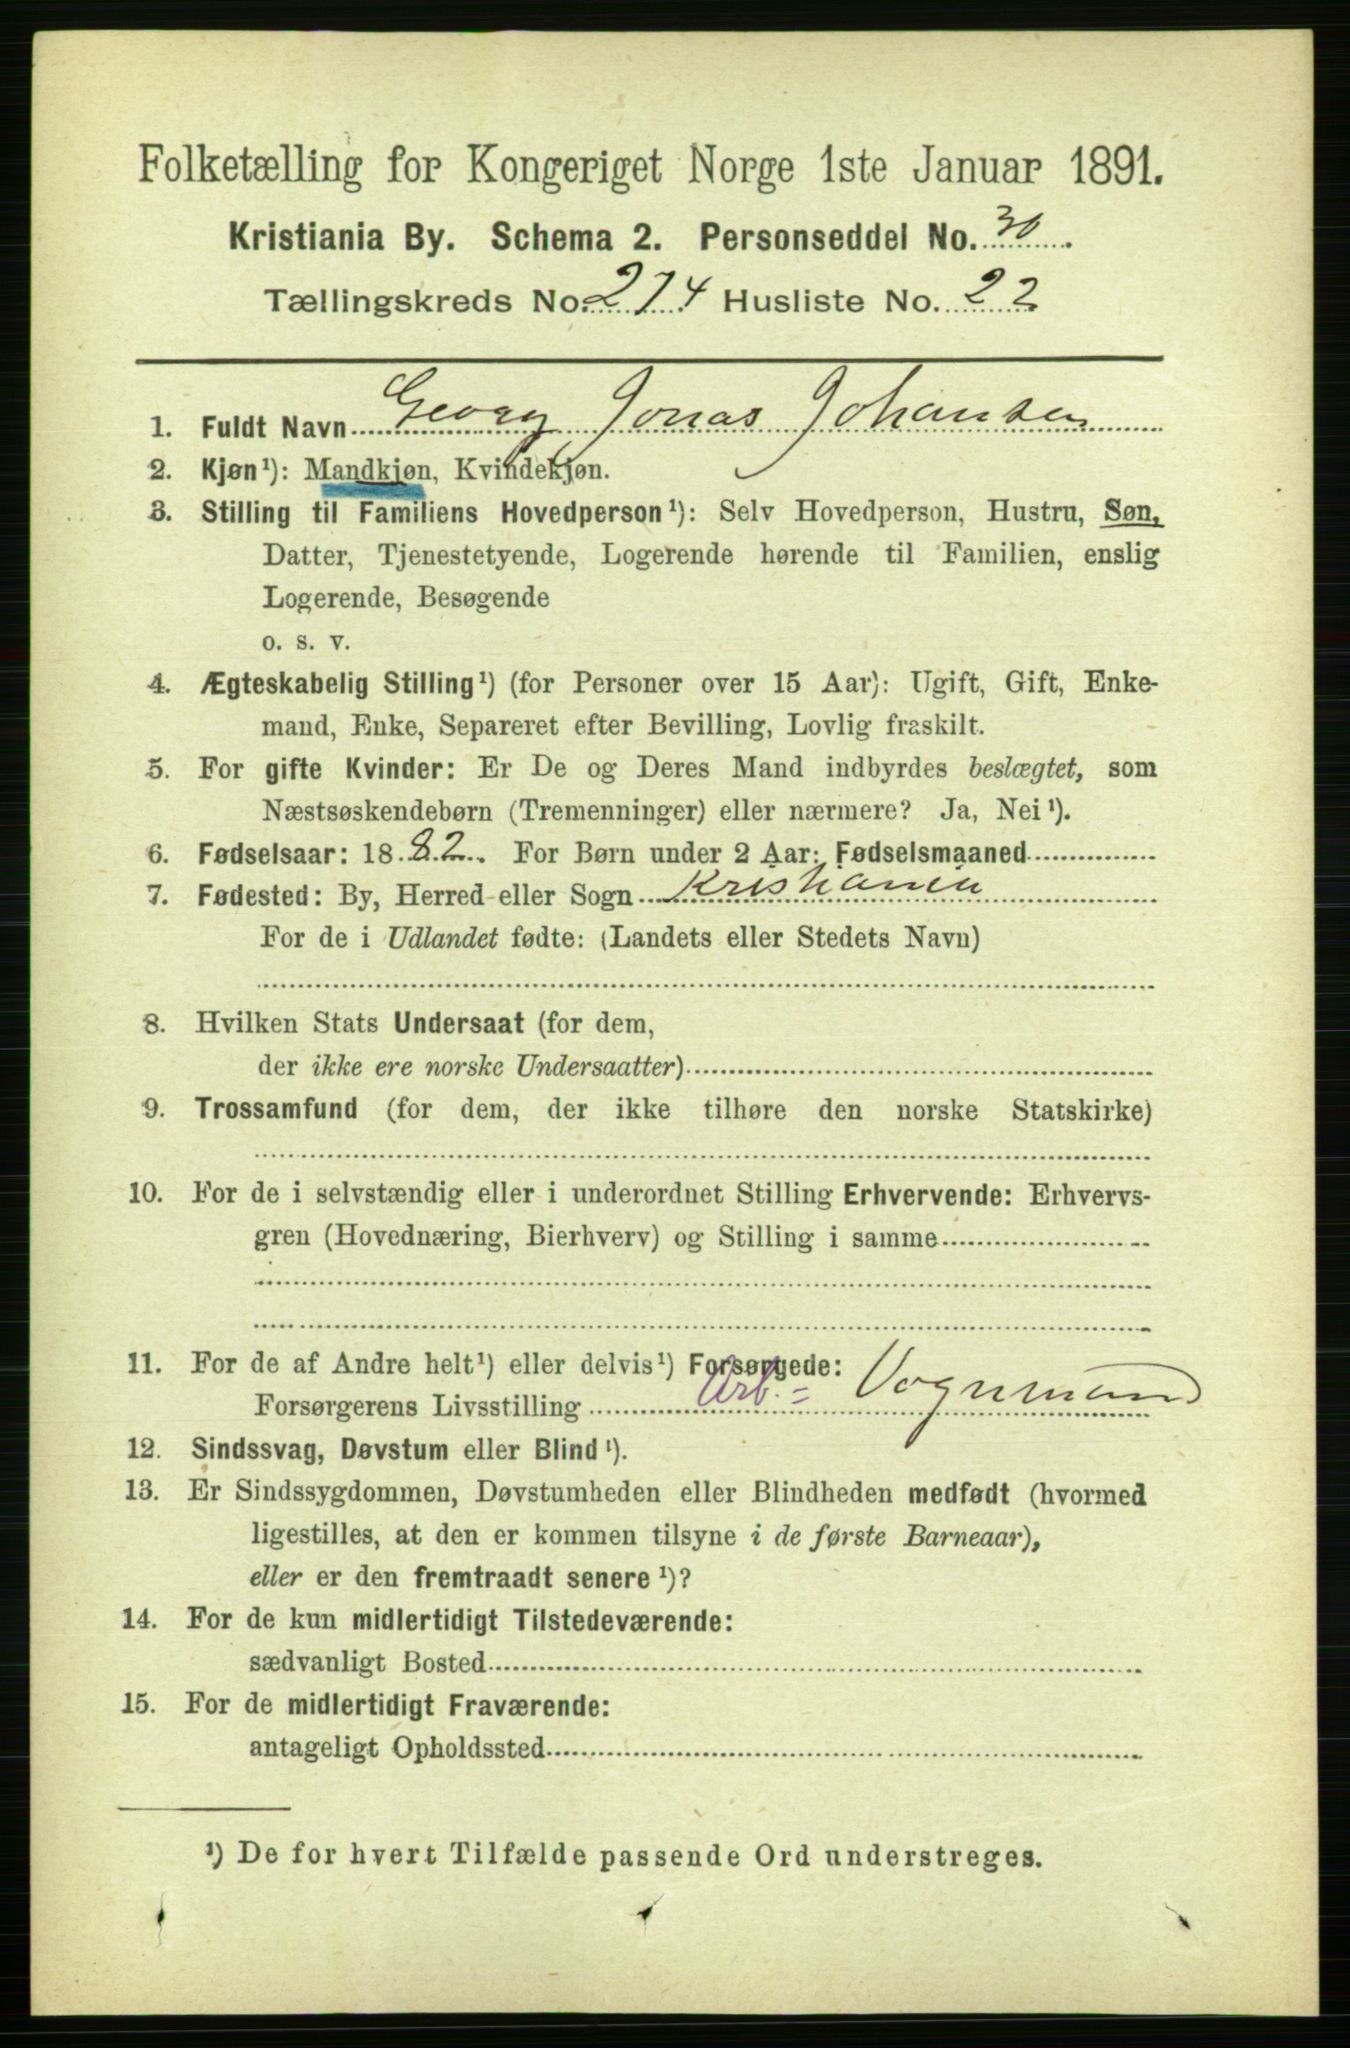 Folketælling for Kongeriget Norge 1ste Januar 1891.
Kristiania By. Schema 2. Personseddel No. 30.
Tællingskreds No. 274 Husliste No. 22
1. Fuldt Navn Georg Jonas Johansen
2. Kjøn¹): Mandkjøn, Kvindekjøn.
3. Stilling til Familiens Hovedperson¹): Selv Hovedperson, Hustru, Søn,
Datter, Tjenestetyende, Logerende hørende til Familien, enslig
Logerende, Besøgende
o. s. v.
4. Ægteskabelig Stilling¹) (for Personer over 15 Aar): Ugift, Gift, Enke-
mand, Enke, Separeret efter Bevilling, Lovlig fraskilt.
5. For gifte Kvinder: Er De og Deres Mand indbyrdes beslægtet, som
Næstsøskendebørn (Tremenninger) eller nærmere? Ja, Nei¹).
6. Fødselsaar: 1882. For Børn under 2 Aar: Fødselsmaaned
7. Fødested: By, Herred eller Sogn Kristiania
For de i Udlandet fødte: (Landets eller Stedets Navn)
8. Hvilken Stats Undersaat (for dem,
der ikke ere norske Undersaatter)
9. Trossamfund (for dem, der ikke tilhøre den norske Statskirke)
10. For de i selvstændig eller i underordnet Stilling Erhvervende: Erhvervs-
gren (Hovednæring, Bierhverv) og Stilling i samme
11. For de af Andre helt¹) eller delvis¹) Forsørgede:
Forsørgerens Livsstilling Arb.= Vognmand
12. Sindssvag, Døvstum eller Blind¹).
13. Er Sindssygdommen, Døvstumheden eller Blindheden medfødt (hvormed
ligestilles, at den er kommen tilsyne i de første Barneaar),
eller er den fremtraadt senere¹)?
14. For de kun midlertidigt Tilstedeværende:
sædvanligt Bosted
15. For de midlertidigt Fraværende:
antageligt Opholdssted
¹) De for hvert Tilfælde passende Ord understreges.